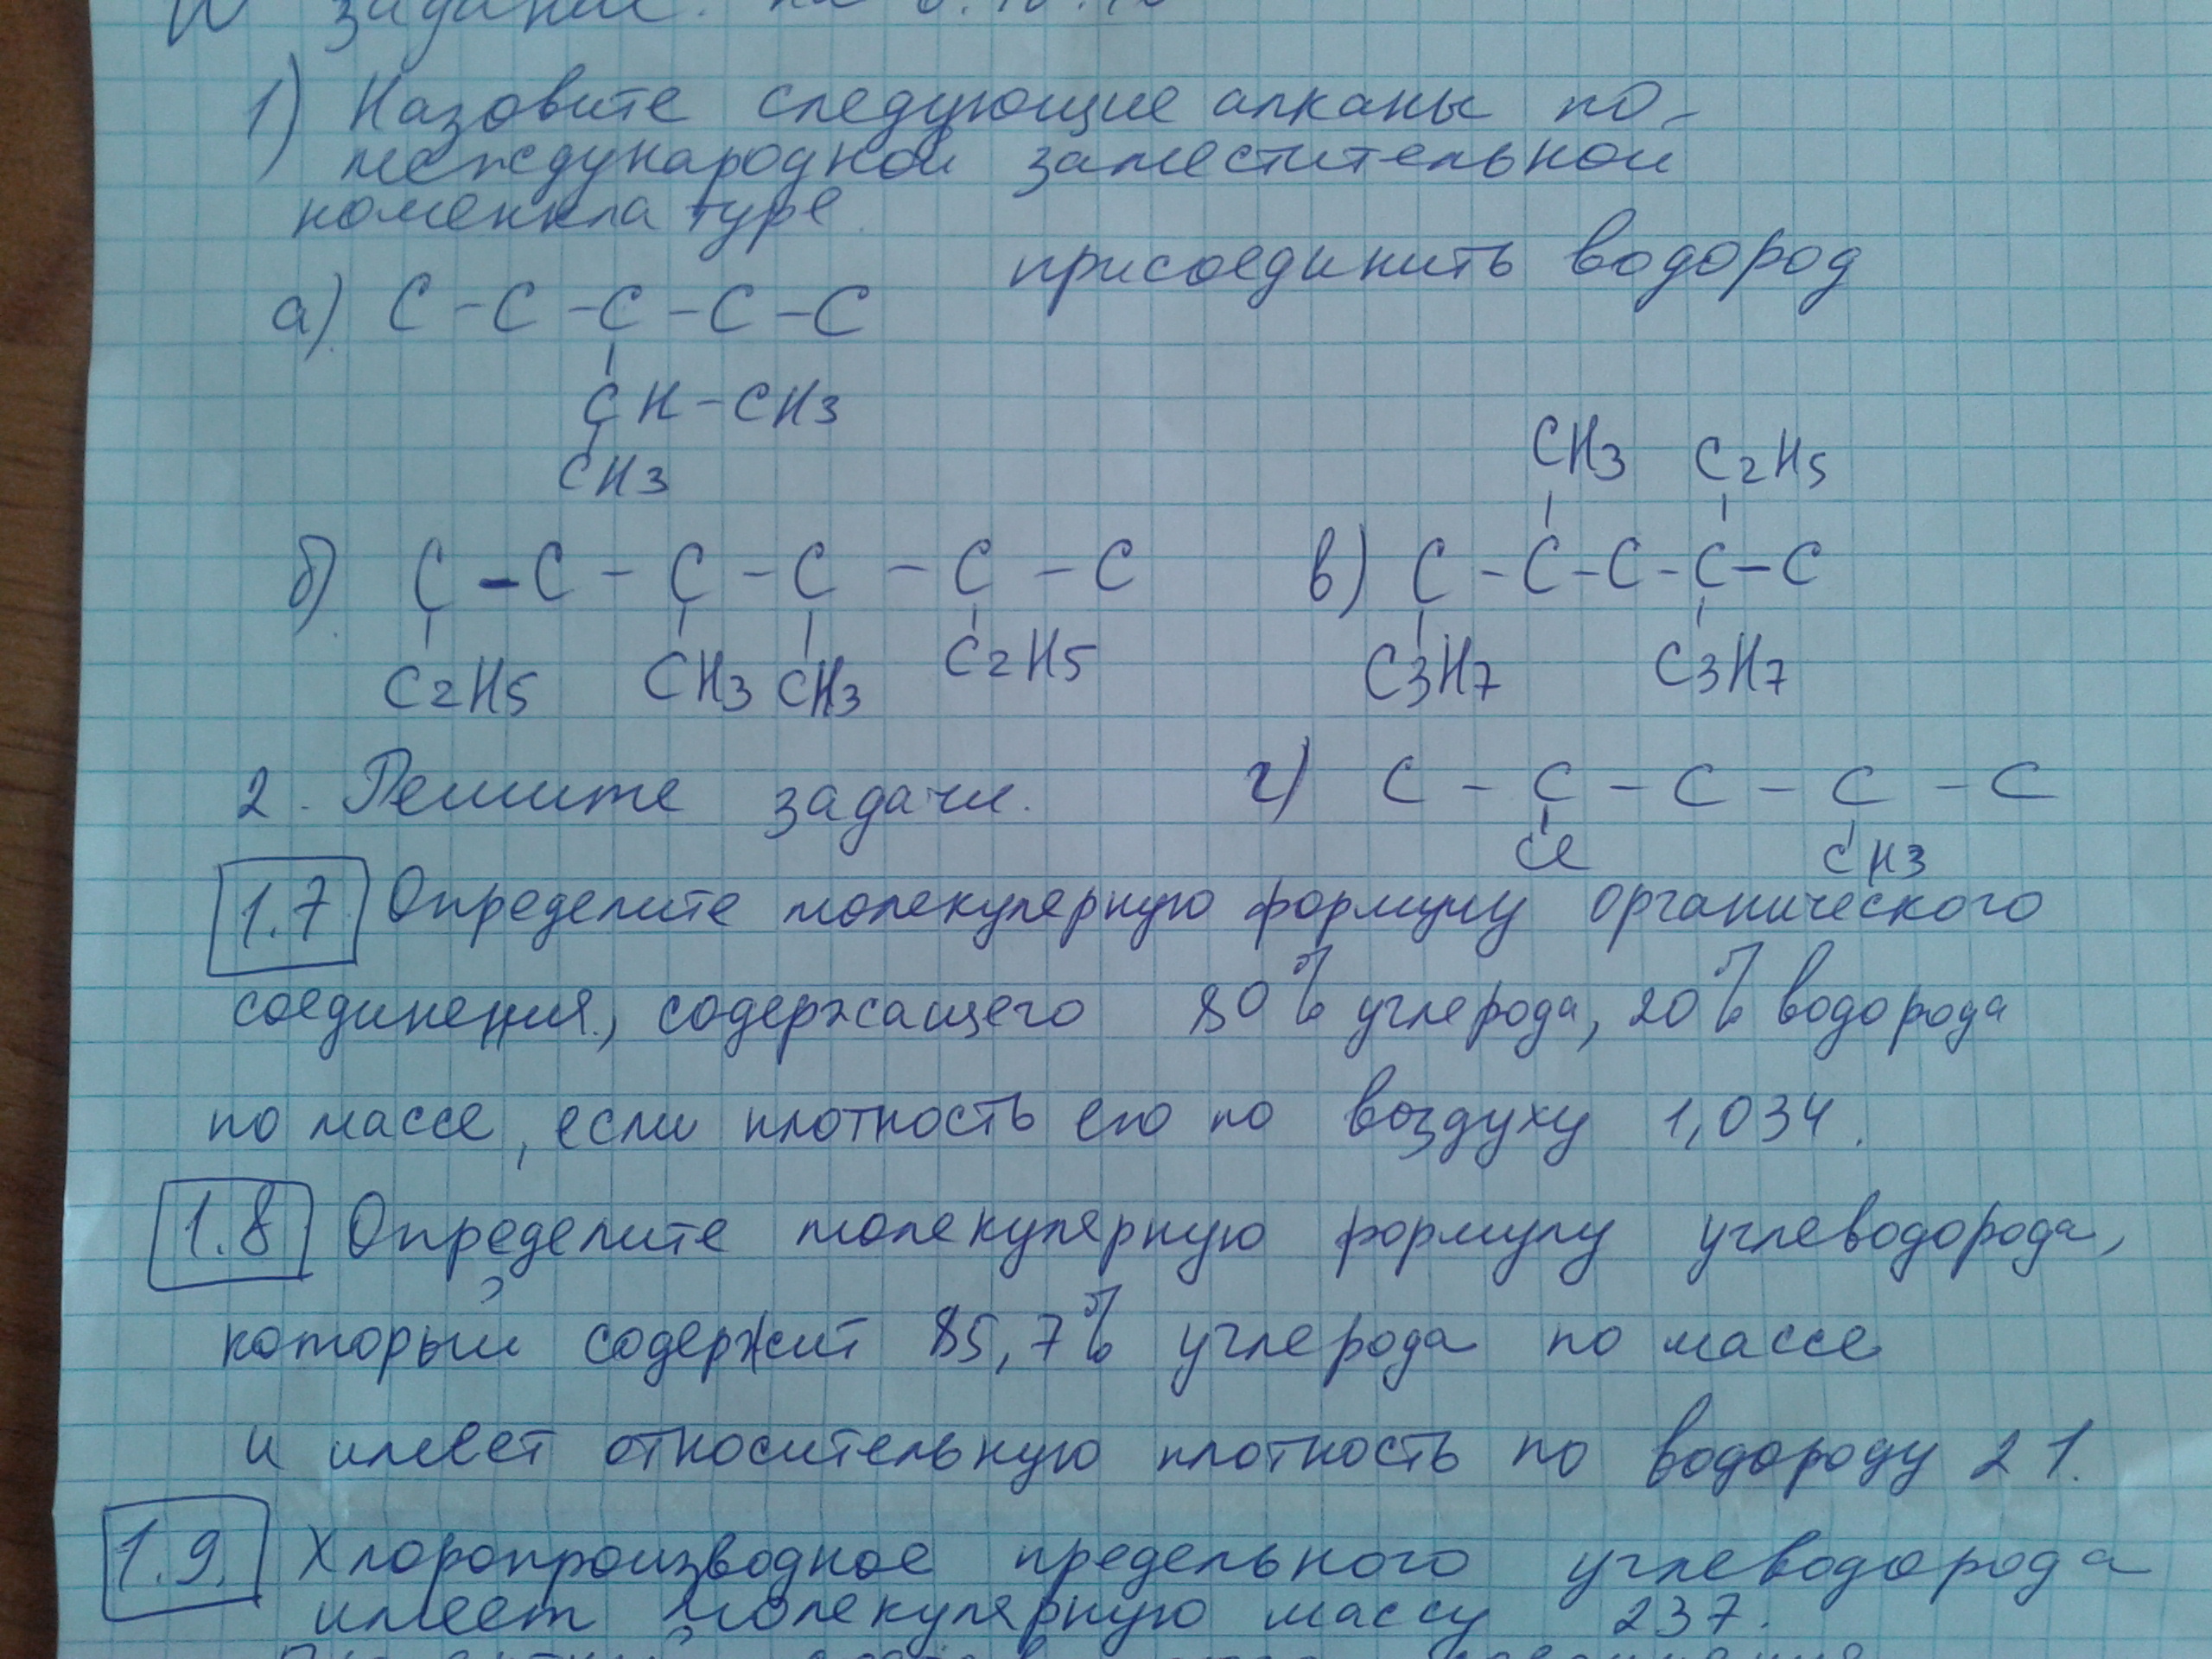 задание. на
1) Назовите следующие алканы по-
международной заместительной
номенклатуре.
присоединить водород
а) C - C - C - C - C
CH - CH3
CH3
б) C - C - C - C - C - C
C2H5 CH3 CH3 C2H5
CH3 C2H5
в) C - C - C - C - C
C3H7 C3H7
2. Решите задачи.
г) C - C - C - C - C
Cl CH3
1.7 Определите молекулярную формулу органического
соединения, содержащего 80% углерода, 20% водорода
по массе, если плотность его по воздуху 1,034.
1.8 Определите молекулярную формулу углеводорода,
который содержит 85,7% углерода по массе
и имеет относительную плотность по водороду 21.
1.9. Хлоропроизводное предельного углеводорода
имеет молекулярную массу 237.